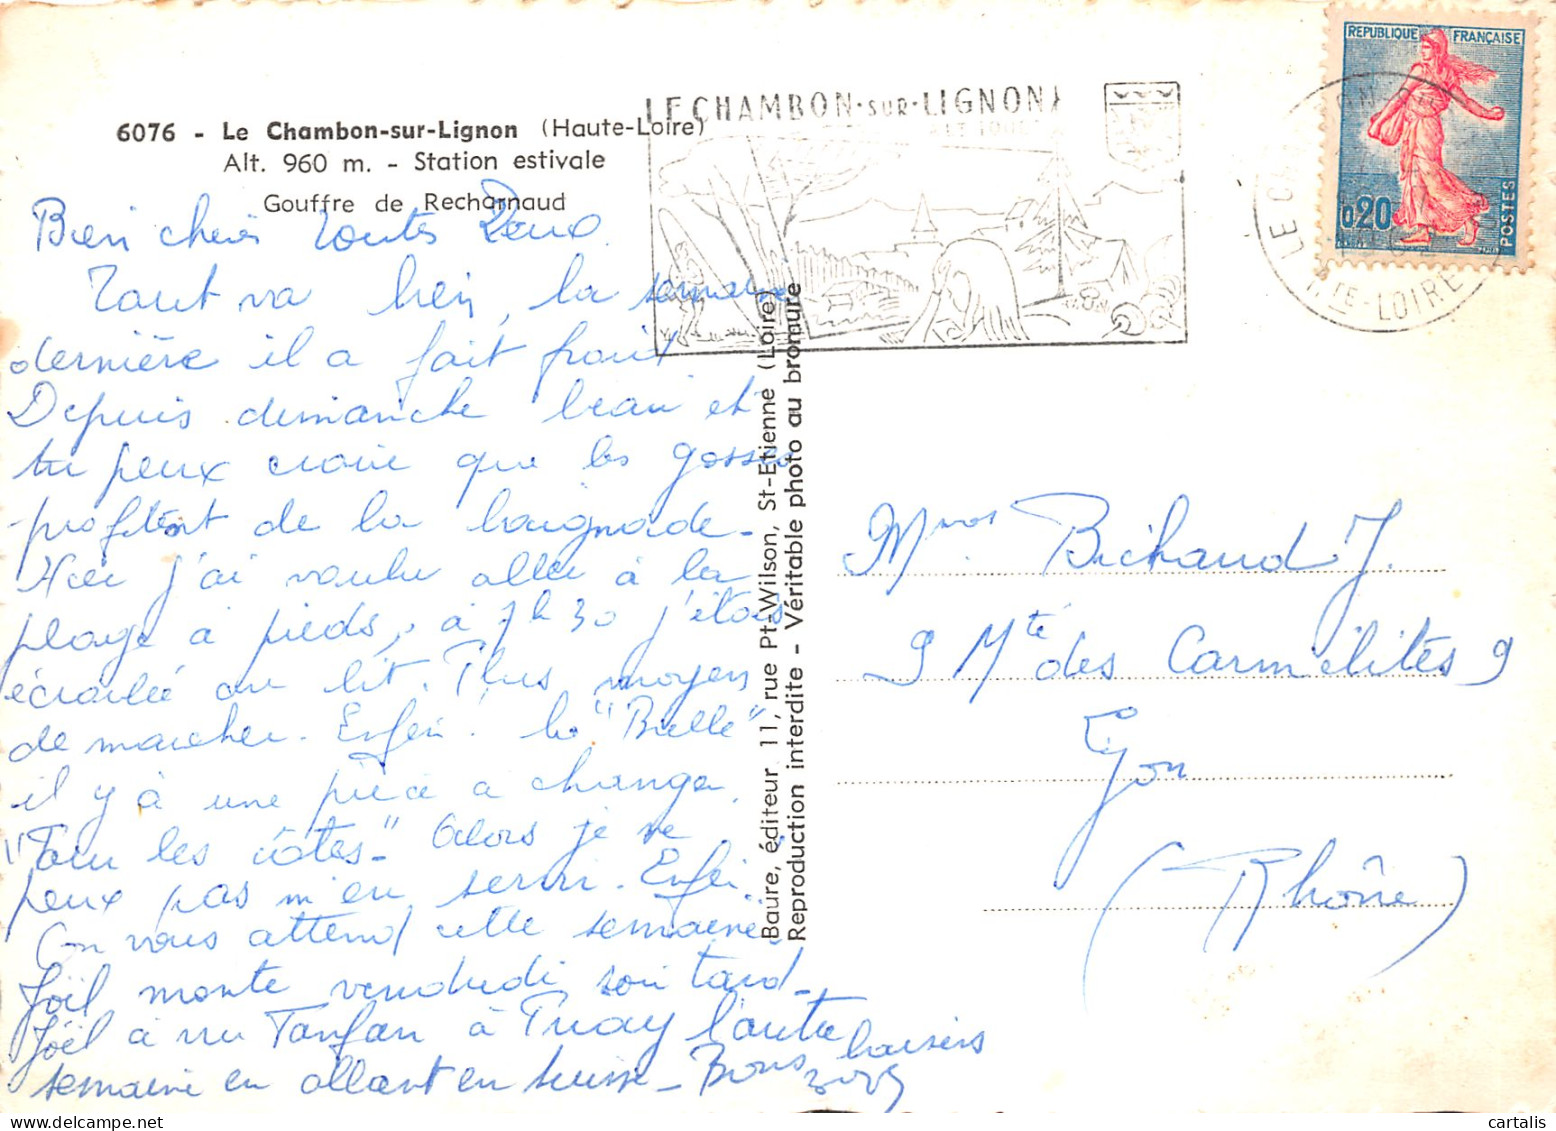 6076 - Le Chambon-sur-Lignon (Haute-Loire)
Alt. 960 m. - Station estivale
Gouffre de Recharnaud
LE CHAMBON-SUR-LIGNON
REPUBLIQUE FRANÇAISE
0,20
POSTES
HTE-LOIRE
Bien chères toutes Deux.
Tout va bien, la semaine
dernière il a fait froid
Depuis dimanche beau et
tu peux croire que les gosses
profitent de la baignade.
Hier j'ai voulu aller à la
plage à pieds, à 7h30 j'étais
écroulée au lit. Plus moyen
de marcher. Enfin! la "Bielle"
il y à une pièce a changer
"Tour les côtes" Alors je ne
peux pas m'en servir. Enfin.
On vous attend cette semaine.
Joël monte vendredi soir tard.
Joël à vu Fanfan à Thuay l'autre
semaine en allant en suisse - Bons baisers
Baure, éditeur 11, rue Pt-Wilson, St-Etienne (Loire)
Reproduction interdite - Véritable photo au bromure
Mmes Bichaud J.
9 Mté des Carmélites 9
Lyon
(Rhône)
cartalis